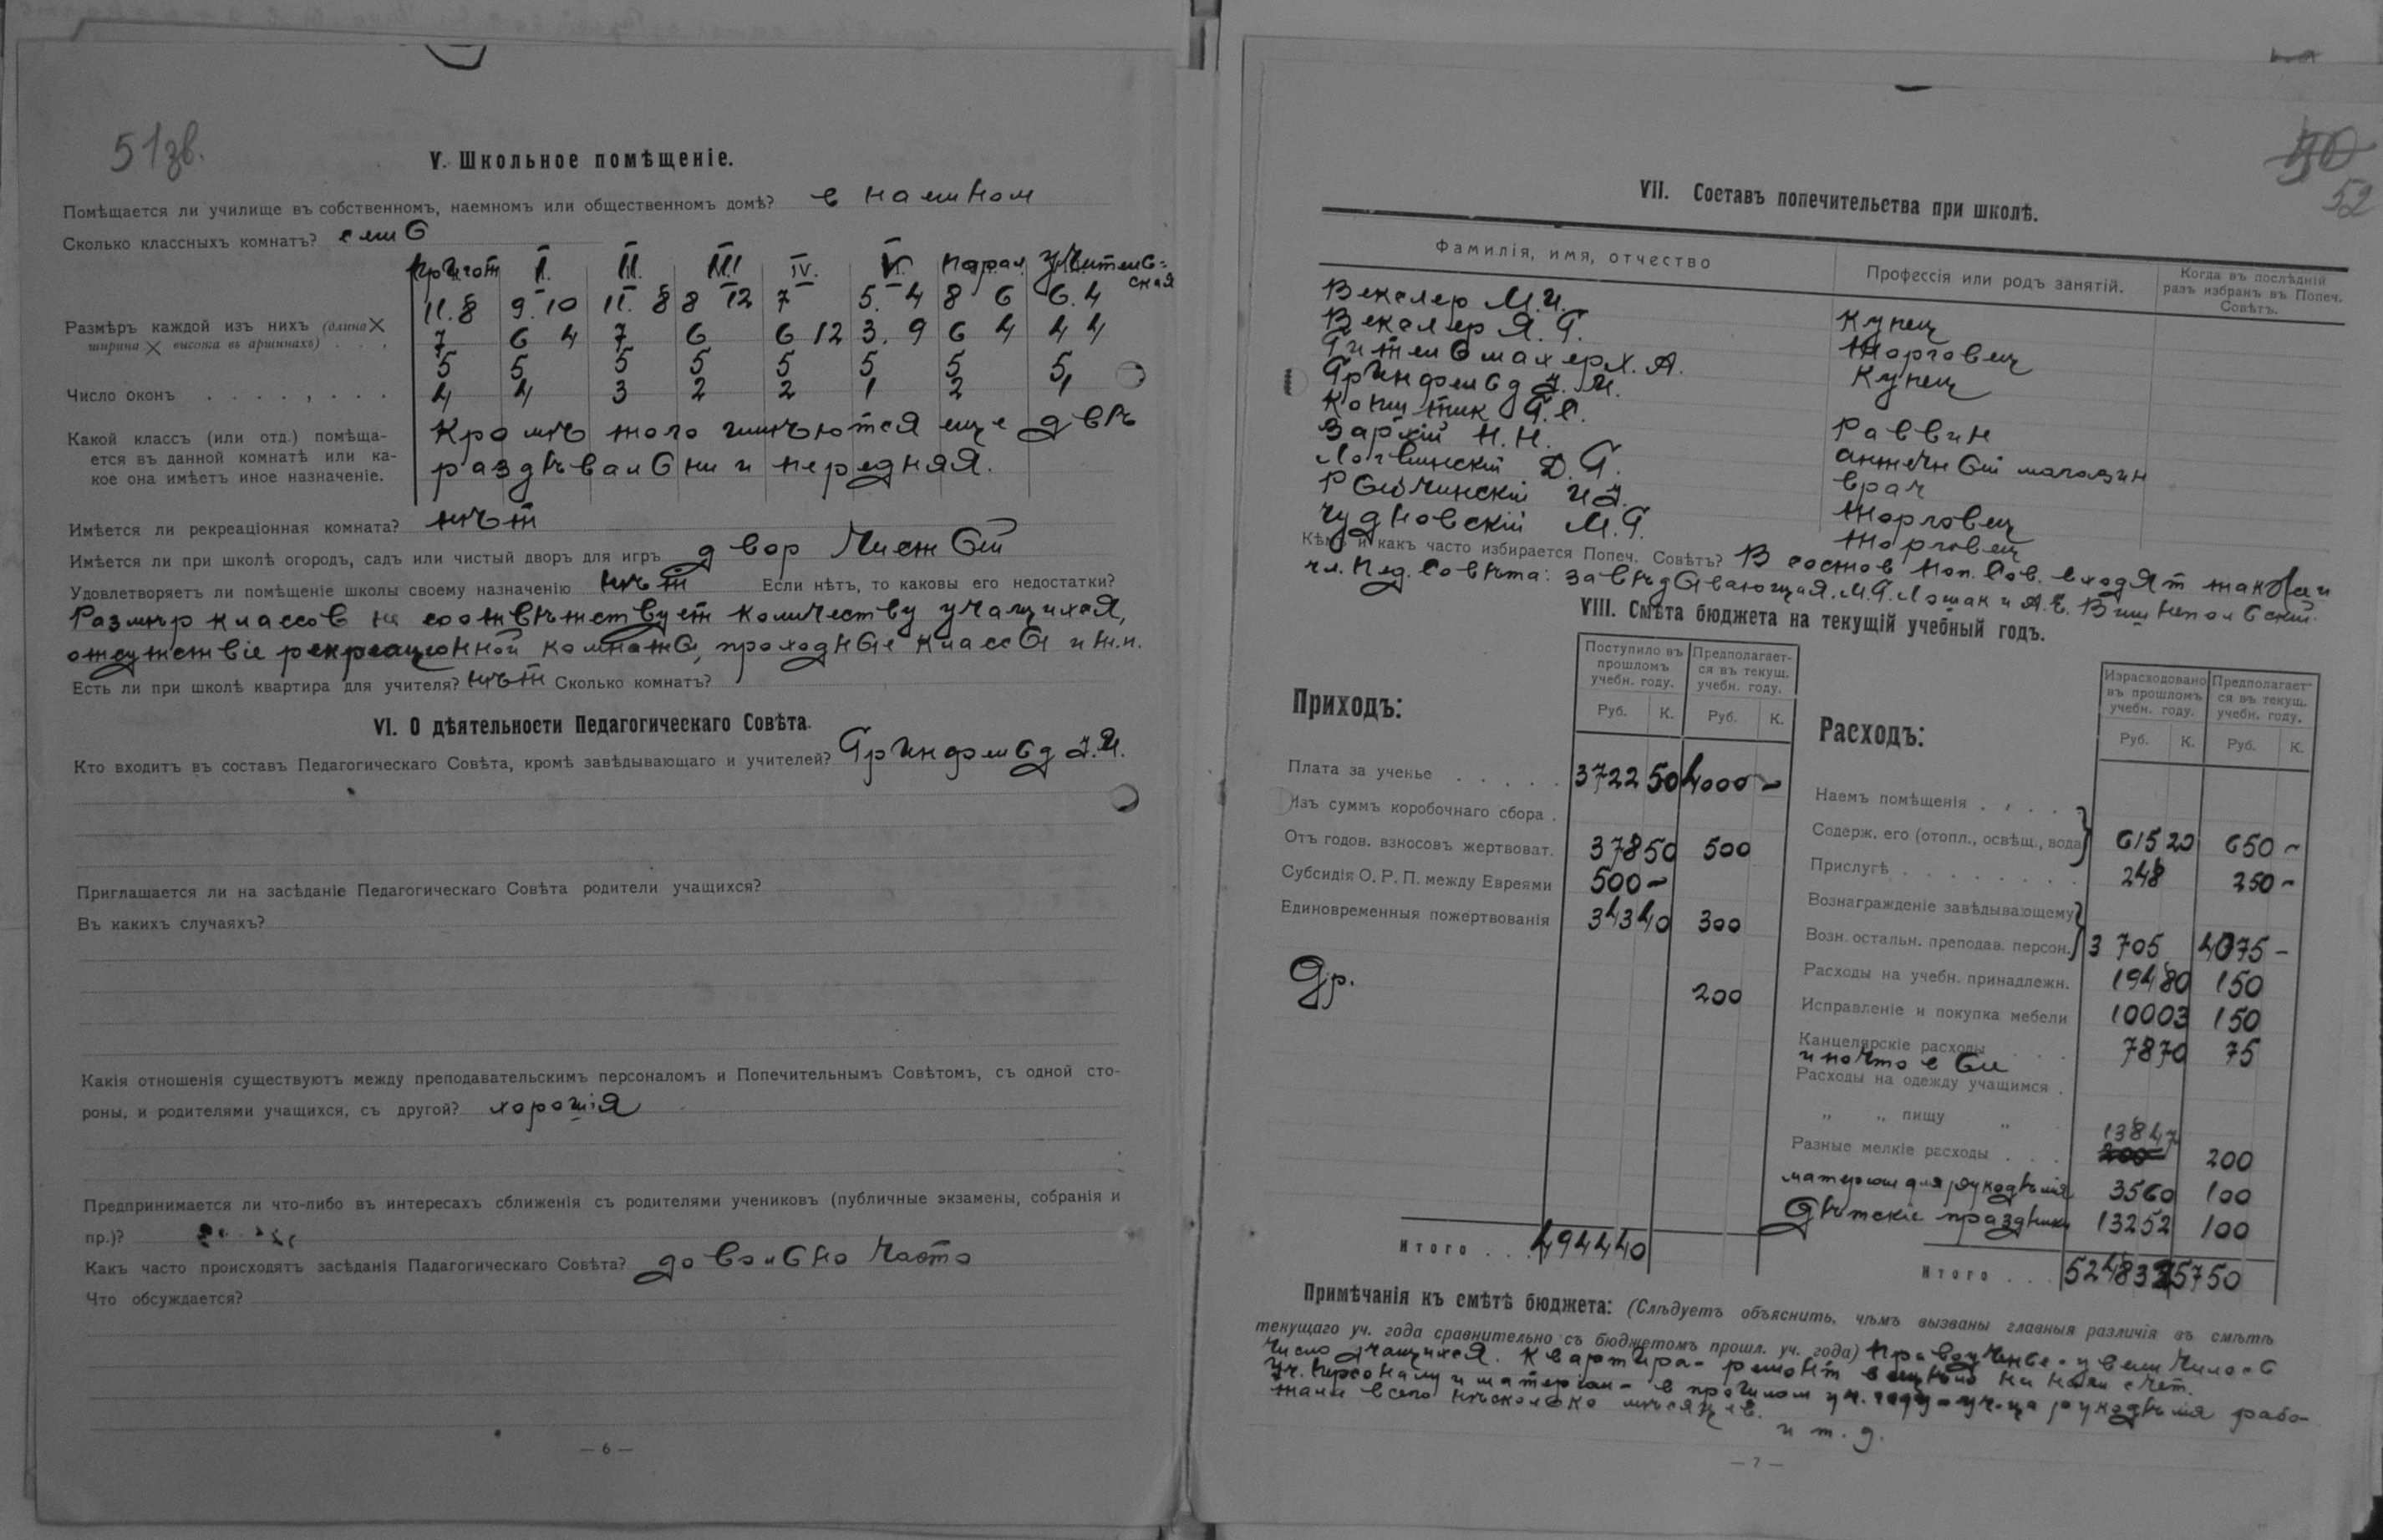 51 зв.
V. Школьное помѣщеніе.
Помѣщается ли училище въ собственномъ, наемномъ или общественномъ домѣ? в наемном
Сколько классныхъ комнатъ? семь
пригот I. II. III IV. V. парал. учитель=
ская
11.8 9.10 11.8 8 12 7 5.4 8 6 6.4
Размѣръ каждой изъ нихъ (длина ×
ширина × высота въ аршинахъ)
7 6 4 7 6 6 12 3.9 6 4 4 4
5 5 5 5 5 5 5 5
Число оконъ 4 4 3 2 2 1 2 1
Какой классъ (или отд.) помѣща-
ется въ данной комнатѣ или ка-
кое она имѣетъ иное назначеніе.
Кромѣ того имѣются еще двѣ
раздѣвальни и передняя.
Имѣется ли рекреаціонная комната? нѣт
Имѣется ли при школѣ огородъ, садъ или чистый дворъ для игръ двор чистый
Удовлетворяетъ ли помѣщеніе школы своему назначенію нѣт Если нѣтъ, то каковы его недостатки?
Размѣр классов не соотвѣтствует количеству учащихся,
отсутствіе рекреаціонной комнаты, проходные классы и т.п.
Есть ли при школѣ квартира для учителя? нѣт Сколько комнатъ?
VI. О дѣятельности Педагогическаго Совѣта.
Кто входитъ въ составъ Педагогическаго Совѣта, кромѣ завѣдывающаго и учителей? Гринфельд З.И.
Приглашается ли на засѣданіе Педагогическаго Совѣта родители учащихся?
Въ какихъ случаяхъ?
Какія отношенія существуютъ между преподавательскимъ персоналомъ и Попечительнымъ Совѣтомъ, съ одной сто-
роны, и родителями учащихся, съ другой? хорошія
Предпринимается ли что-либо въ интересахъ сближенія съ родителями учениковъ (публичные экзамены, собранія и
пр.)?
Какъ часто происходятъ засѣданія Падагогическаго Совѣта? довольно часто
Что обсуждается?
— 6 —
52
VII. Составъ попечительства при школѣ.
Фамилія, имя, отчество
Профессія или родъ занятій.
Когда въ послѣдній
разъ избранъ въ Попеч.
Совѣтъ.
Векслер М.И.
Векслер Я.Г.
Гительмахер Х.А.
Гринфельд З.И.
Копштик Г.С.
Зархій Н.Н.
Логвинскій Д.Г.
Чудновскій М.Г.
Купец
Торговец
Купец
Раввин
аптечный магазин
врач
Торговец
Торговец
Кѣмъ и какъ часто избирается Попеч. Совѣтъ? В состав поп. Сов. входят также и
чл. Пед. Совѣта: завѣдывающая М.Г. Лошак и А.Е. Вишнепольскій.
VIII. Смѣта бюджета на текущій учебный годъ.
Приходъ:
Поступило въ
прошломъ
учебн. году.
Предполагает-
ся въ текущ.
учебн. году.
Руб. К. Руб. К.
Плата за ученье 3722 50 4000 –
Изъ суммъ коробочнаго сбора
Отъ годов. взносовъ жертвоват. 378 50 500
Субсидія О. Р. П. между Евреями 500 –
Единовременныя пожертвованія 343 40 300
Др. 200
Итого 4944 40
Расходъ:
Израсходовано
въ прошломъ
учебн. году.
Предполагает-
ся въ текущ.
учебн. году.
Руб. К. Руб. К.
Наемъ помѣщенія
Содерж. его (отопл., освѣщ., вода) 615 20 650 –
Прислугѣ 248 250 –
Вознагражденіе завѣдывающему
Возн. остальн. преподав. персон. 3705 4075 –
Расходы на учебн. принадлежн. 194 80 150
Исправленіе и покупка мебели 100 03 150
Канцелярскіе расходы 78 70 75
и почтовые
Расходы на одежду учащимся
„ „ пищу „
138 47
Разные мелкіе расходы 200 200
матеріал для рукодѣлія 35 60 100
Дѣтскіе праздники 132 52 100
Итого 5248 32 5750
Примѣчанія къ смѣтѣ бюджета: (Слѣдуетъ объяснить, чѣмъ вызваны главныя различія въ смѣтѣ
текущаго уч. года сравнительно съ бюджетомъ прошл. уч. года) Правоученье - увеличилось
число учащихся. Квартира - ремонт на наш счет.
Уч. персоналу и матеріал - в прошлом уч. году уч-ца рукодѣлія рабо-
тала всего нѣсколько мѣсяцев.
и т. д.
— 7 —